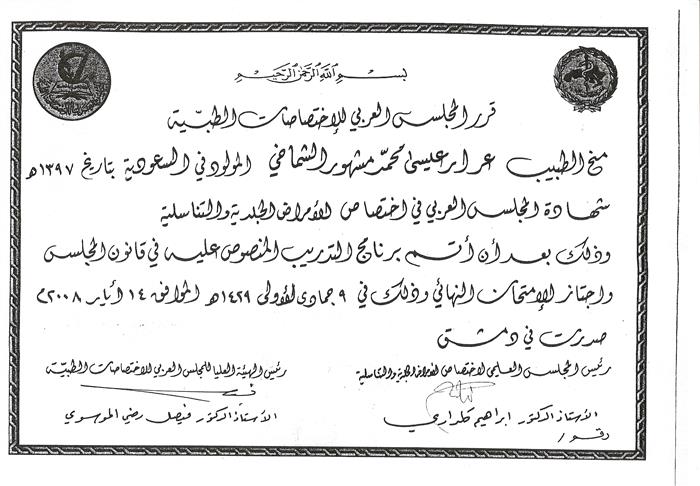 بسم الله الرحمن الرحيم
قرر المجلس العربي للإختصاصات الطبية
منح الطبيب عرار عيسى محمد مشهور الشماخي المولود في السعودية بتاريخ ١٣٩٧هـ
شهادة المجلس العربي في اختصاص الأمراض الجلدية والتناسلية
وذلك بعد أن أتم برنامج التدريب المنصوص عليه في قانون المجلس
واجتاز الإمتحان النهائي وذلك في ٩ جمادى الأولى ١٤٢٩هـ الموافق ١٤ أيار ٢٠٠٨م
صدرت في دمشق
رئيس المجلس العلمي لاختصاص الأمراض الجلدية والتناسلية
رئيس الهيئة العليا للمجلس العربي للاختصاصات الطبية
الأستاذ الدكتور ابراهيم كلداري
الأستاذ الدكتور فيصل رضي الموسوي